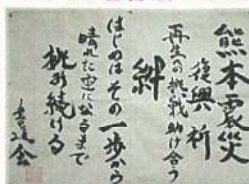 熊本震災
復興祈
再生への挑戦助け合う
絆
はじめはその一歩から
晴れた空になるまで
挑み続ける